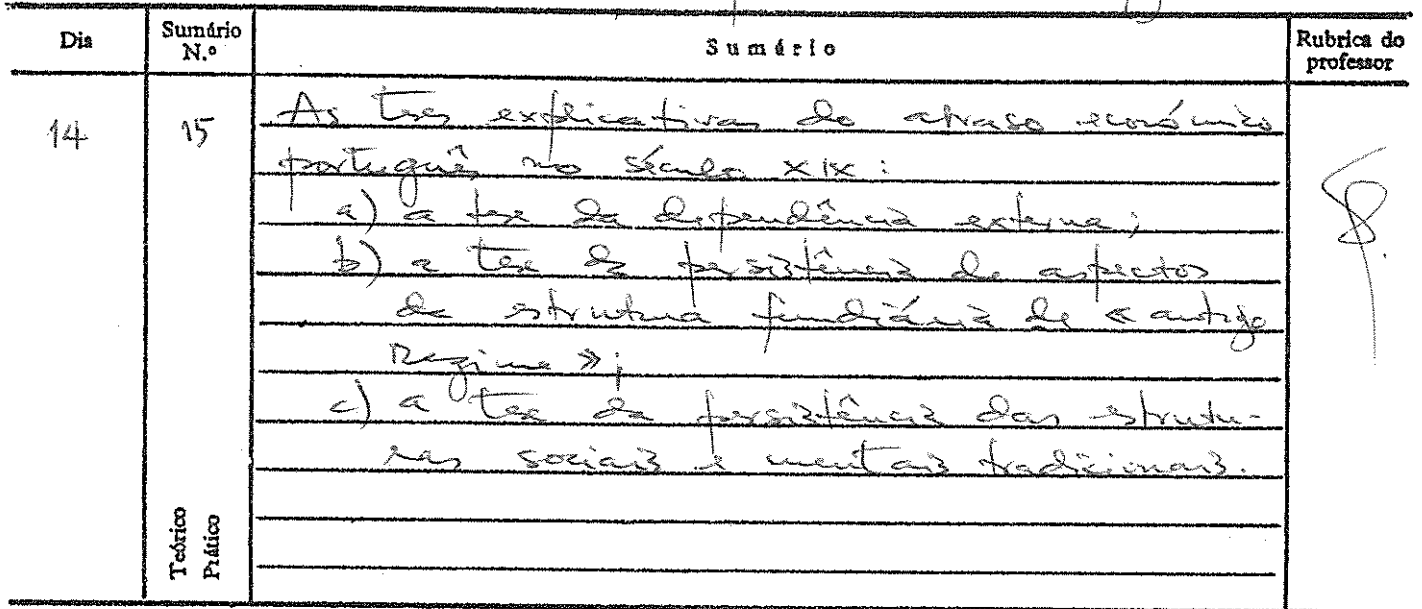 Dia
Sumário N.º
Sumário
Rubrica do professor
14
15
As teses explicativas do atraso económico
português no século XIX:
a) a tese da dependência externa;
b) a tese da persistência de aspectos
da estrutura fundiária de «antigo
Regime»;
c) a tese da persistência das estrutu-
ras sociais e mentais tradicionais.
Teórico
Prático